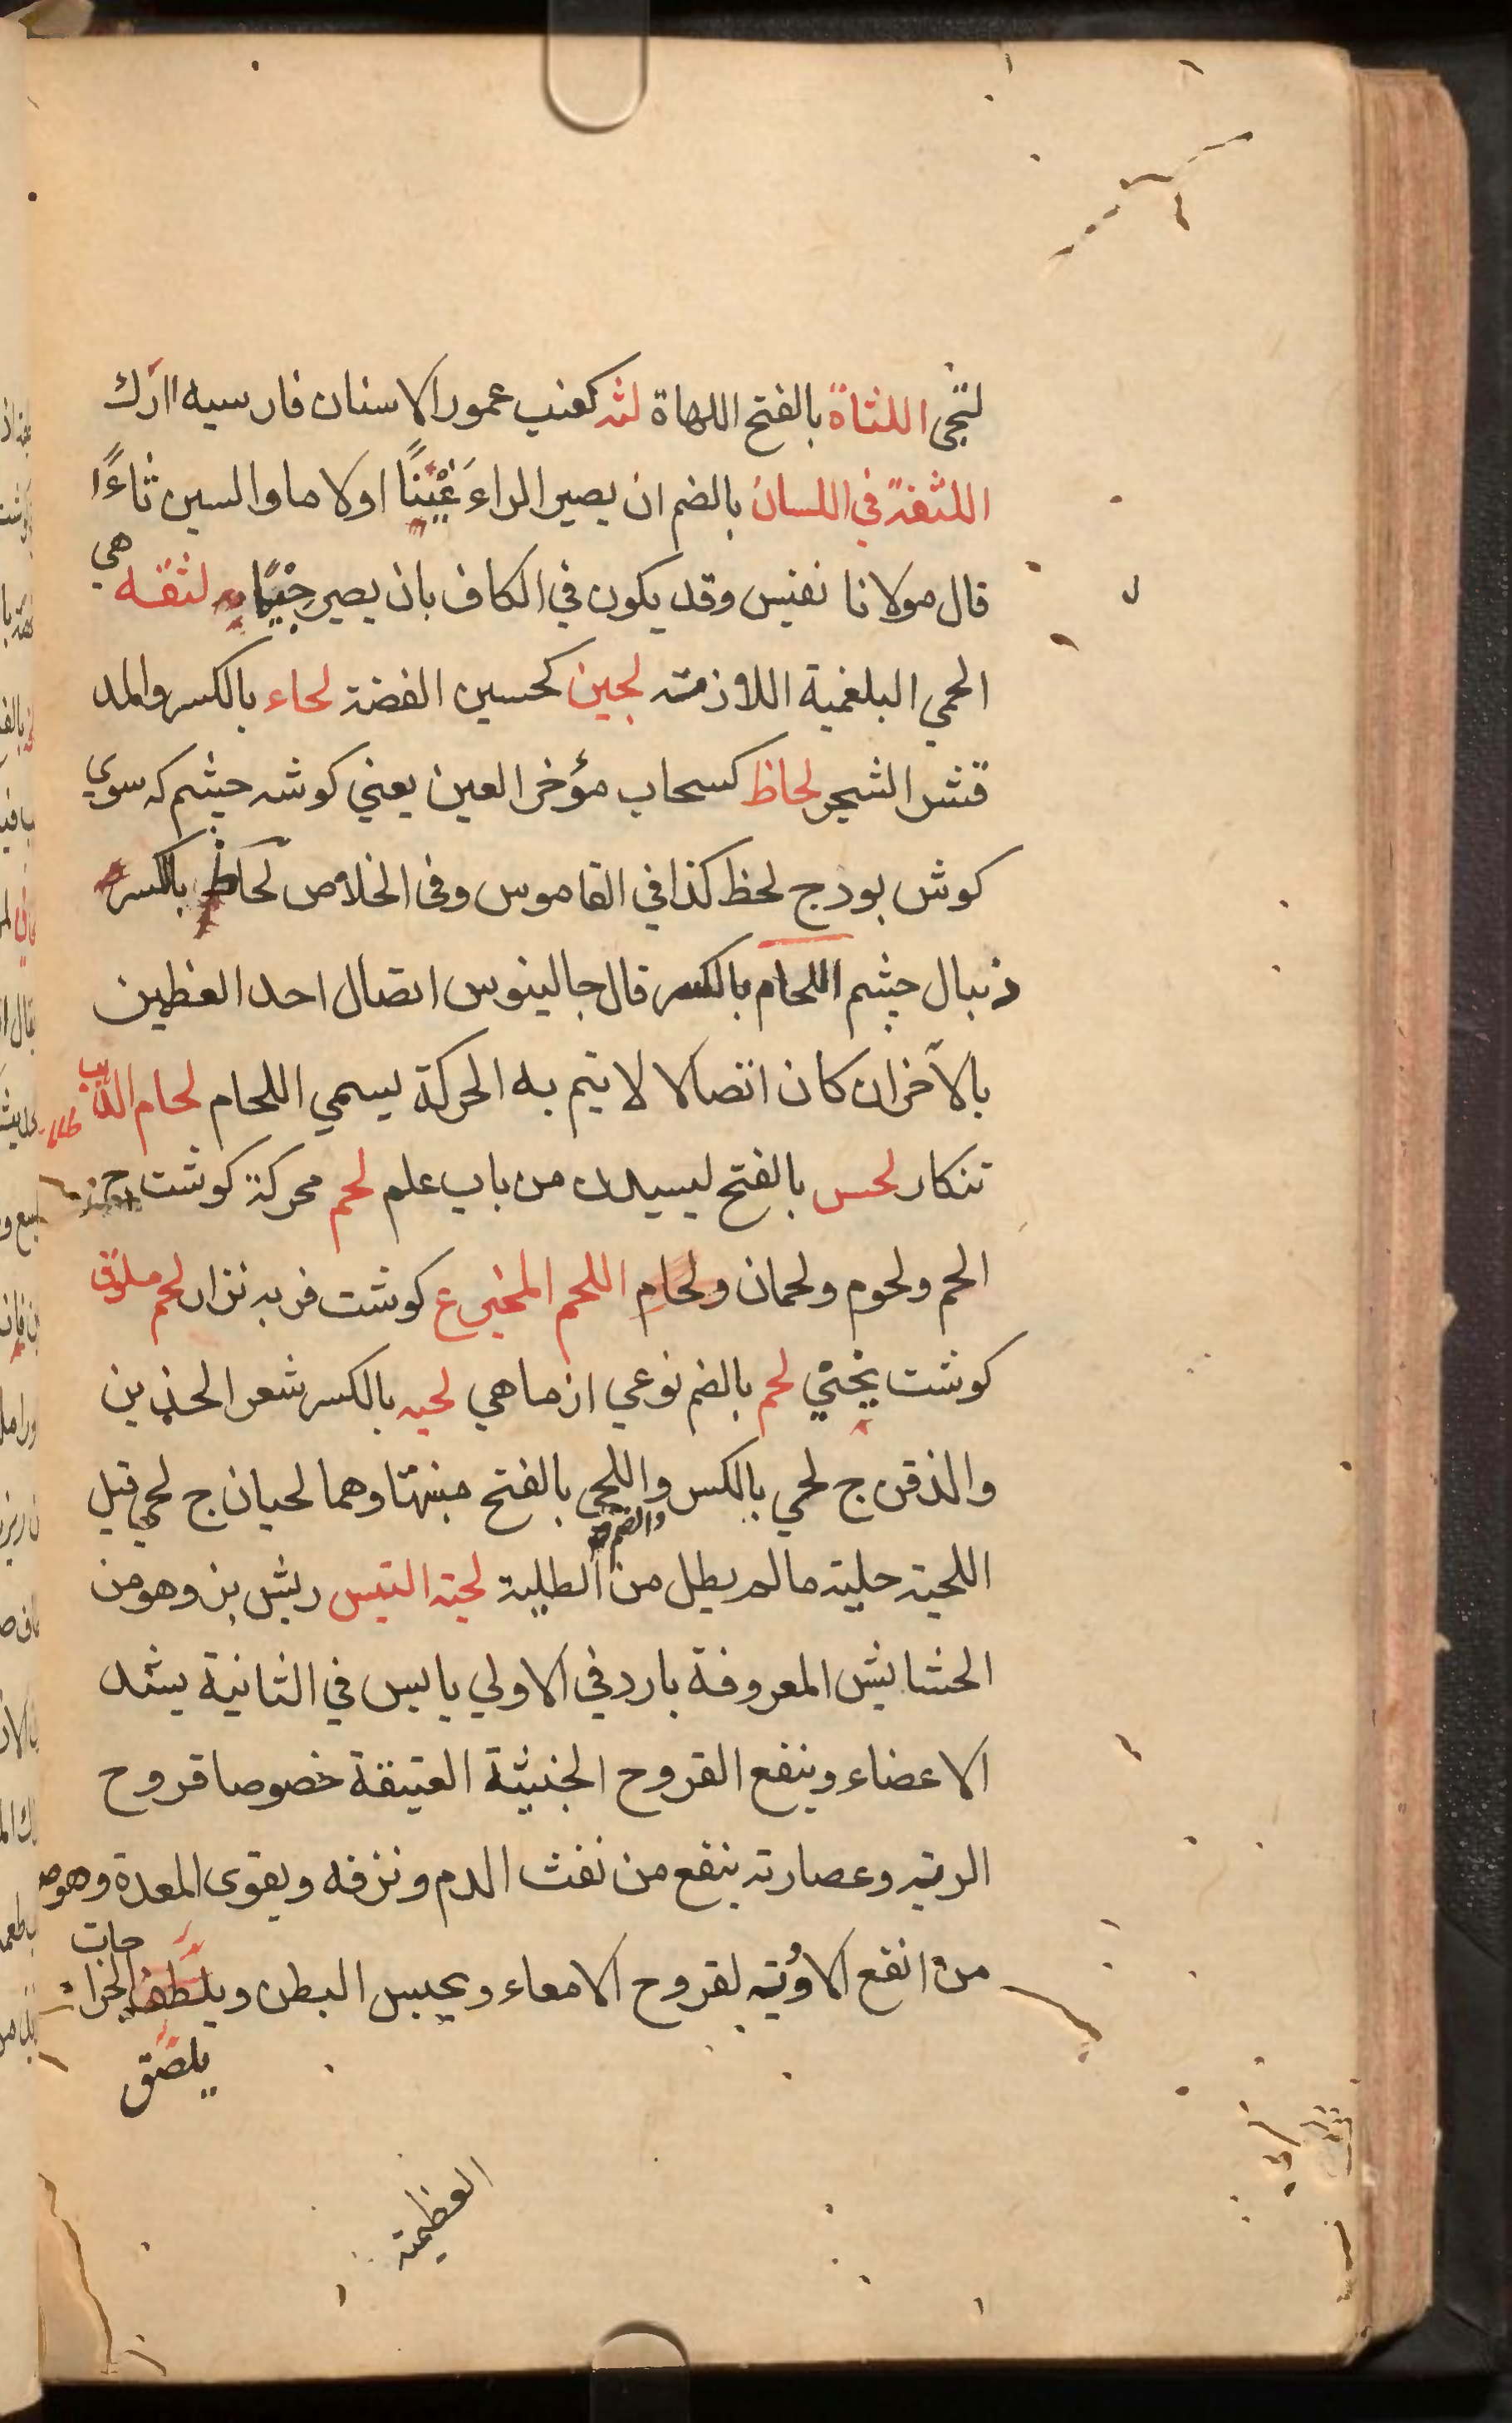 لتجى اللثاة بالفتح اللهاة لثه كعنب عمور الاسنان فارسيه ارك
اللثغة في اللسان بالضم ان يصير الراء غينًا اولاما والسين ثاءً
قال مولانا نفيس وقد يكون في الكاف بان يصير جيمًا لثقه هي
الحمي البلغمية اللازمته لجين كحسين الفضة لحاء بالكسر والمد
قشر الشجر لحاظ كسحاب مؤخر العين يعني كوشه چشم كه سوي
كوش بود ج لحظ كذا في القاموس وفى الخلاص لحاظ بالكسر
دنبال چشم اللحام بالكسر قال جالينوس اتصال احد العظمين
بالآخر ان كان اتصالا لا يتم به الحركة يسمي اللحام لحام الذهب
تنكار لحس بالفتح ليسيدن من باب علم لحم محركة كوشت ج
الحم ولحوم ولحمان ولحام اللحم المخبرع كوشت فربه نزار لحم ملزق
كوشت يخني لحم بالضم نوعي از ماهي لحيه بالكسر شعر الخدين
والذقن ج لحي بالكسر واللحى بالفتح منبتها وهما لحيان ج لحي قيل
والضم
اللحية حلية مالم يطل من الطلية لحية التيس ريش بز وهو من
الحشايش المعروفة بارد في الاولي يابس في الثانية يشد
الاعضاء وينفع القروح الخبيثة العتيقة خصوصا قروح
الرية وعصارته ينفع من نفث الدم ونزفه ويقوى المعدة وهو
من انفع الادوية لقروح الامعاء ويحبس البطن ويلطف الجراحات
يلصق
العظيمة
ل